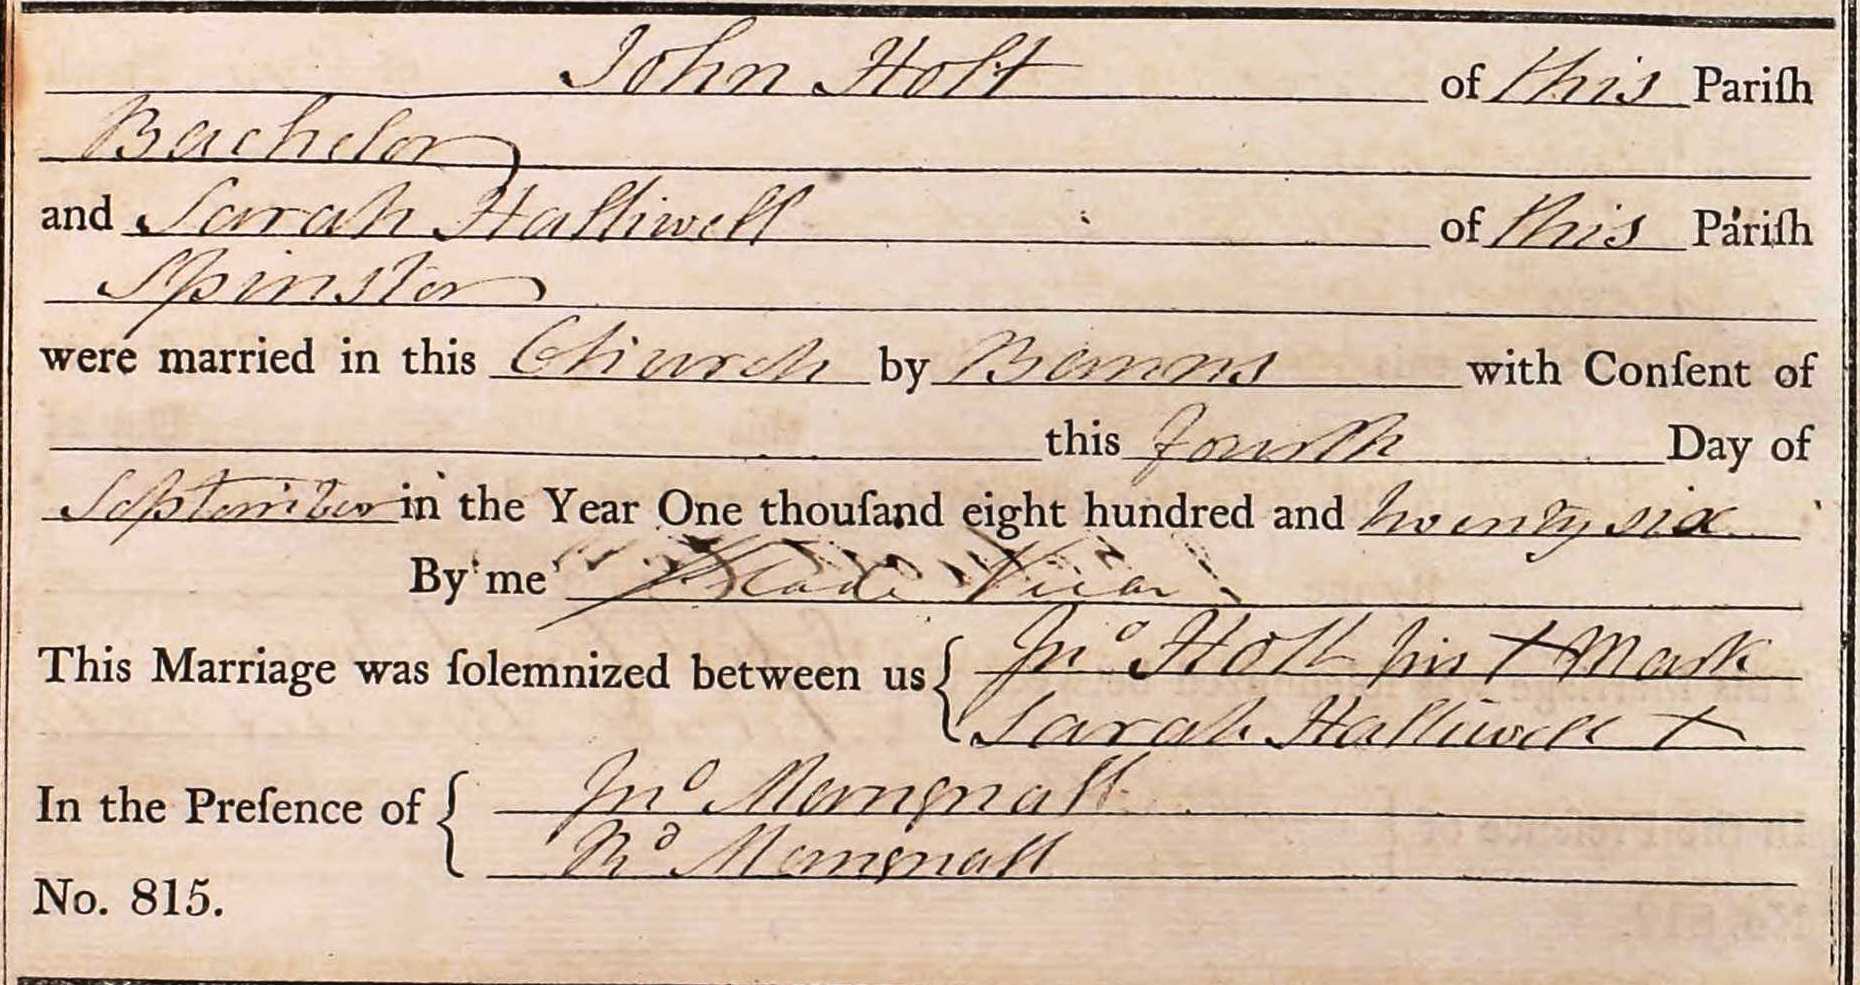 John Holt of this Pariſh
Bachelor
and Sarah Halliwell of this Pariſh
Spinster
were married in this Church by Banns with Conſent of
this fourth Day of
September in the Year One thouſand eight hundred and twenty six
By me Slade Vicar
This Marriage was ſolemnized between us { Jnº Holt his + Mark
Sarah Halliwell +
In the Preſence of { Jnº Mangnall
Rd Mangnall
No. 815.